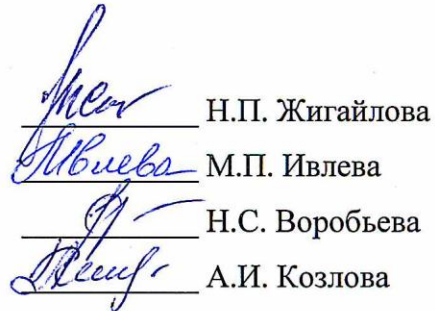 Н.П. Жигайлова
Ивлева М.П. Ивлева
Н.С. Воробьева
А.И. Козлова